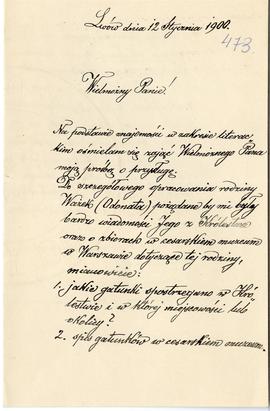 Lwów dnia 12 Stycznia 1900.
473.
Wielmożny Panie!
Na podstawie znajomości w zakresie literac-
kim ośmielam się zająć Wielmożnego Pana
moją prośbą o przysługę.
Do szczegółowego opracowania rodziny
Ważek (Odonata) pożądane by mi były
bardzo wiadomości Jego z Królestwa
oraz o zbiorach w cesarskiem muzeum
w Warszawie dotyczące tej rodziny,
mianowicie:
1. jakie gatunki spostrzeżono w Kró-
lestwie i w której miejscowości lub
okolicy?
2. spis gatunków w cesarskiem muzeum